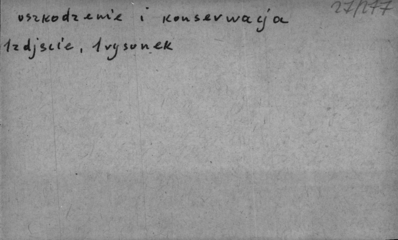 27/277
uszkodzenie i konserwacja
1zdjęcie, 1rysunek